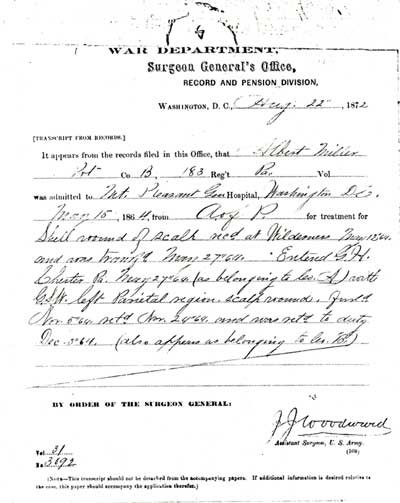 4
WAR DEPARTMENT,
Surgeon General's Office,
RECORD AND PENSION DIVISION,
WASHINGTON, D. C., Aug. 22", 1872
[TRANSCRIPT FROM RECORDS.]
It appears from the records filed in this Office, that Albert Miller
Pvt Co B, 183 Reg't Pa. Vol
was admitted to Mt. Pleasant Gen Hospital, Washington D.C.
May 15, 1864, from A of P. for treatment for
Shell wound of scalp rec'd at Wilderness May 12"64.
and was transf'd May 27"64. Entered G.H.
Chester Pa. May 27"64 (as belonging to Co. A) with
G.S.W. left Parietal region scalp wound. Furl'd
Nov. 5"64. ret'd Nov. 24"64. and was ret'd to duty
Dec. 5"64. (also appears as belonging to Co. B.)
BY ORDER OF THE SURGEON GENERAL:
J J Woodward
Assistant Surgeon, U. S. Army.
Vol. 31
Do 3692
(NOTE—This transcript should not be detached from the accompanying papers. If additional information is desired relative to
the case, this paper should accompany the application therefor.)